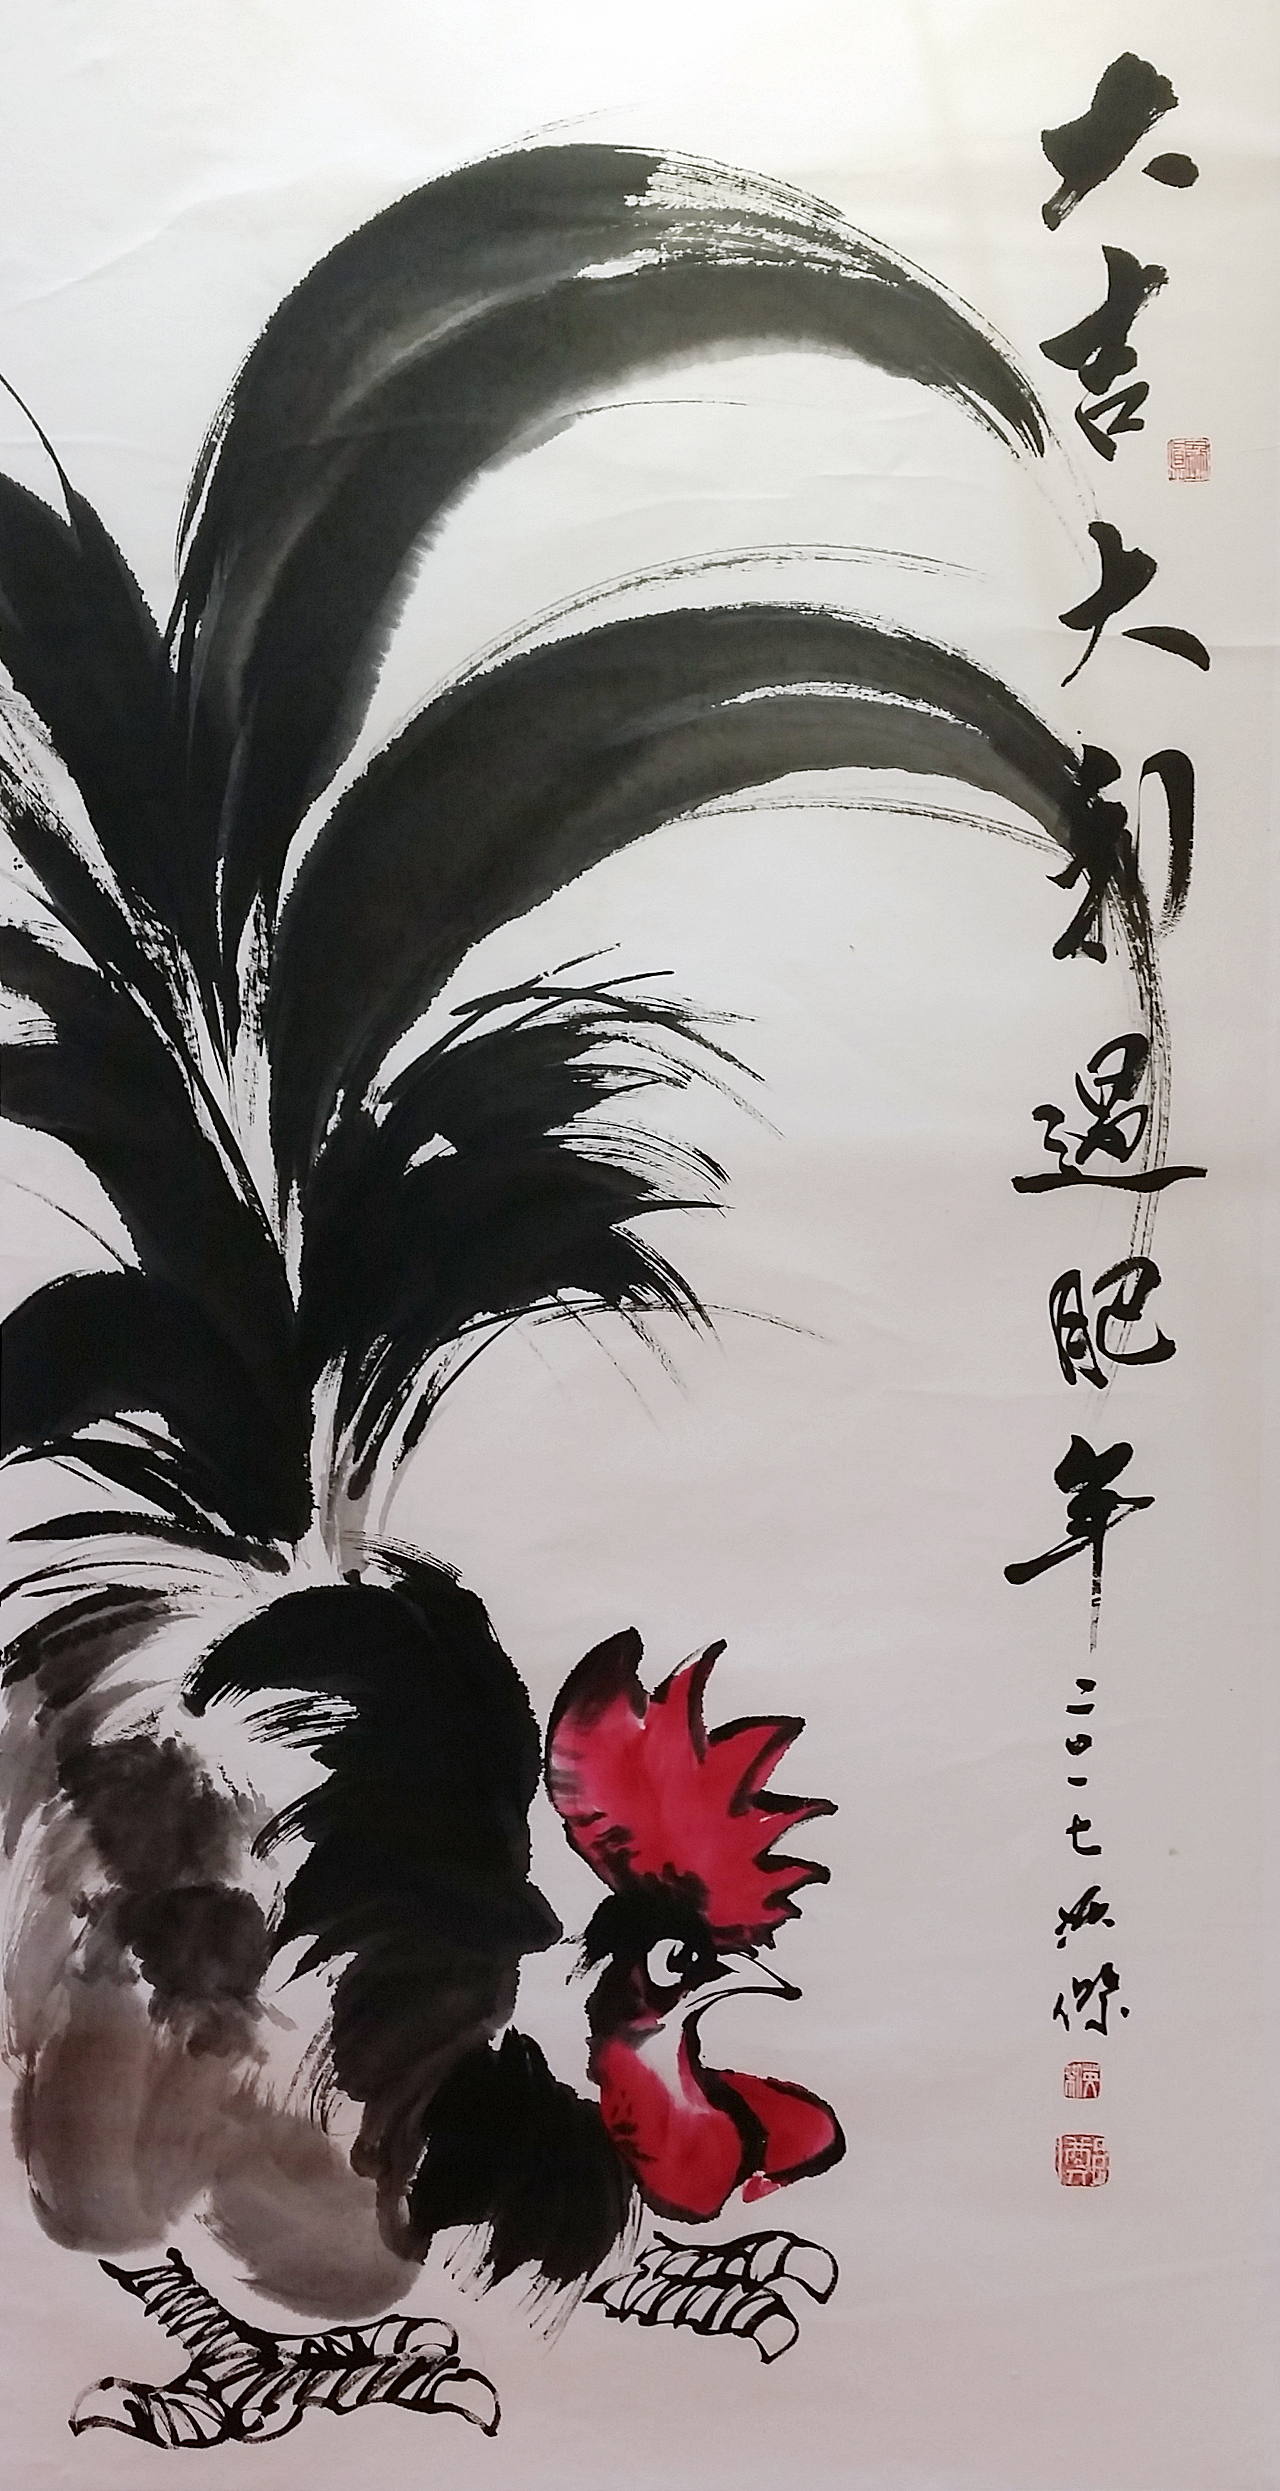 大吉大利過肥年
二〇一七